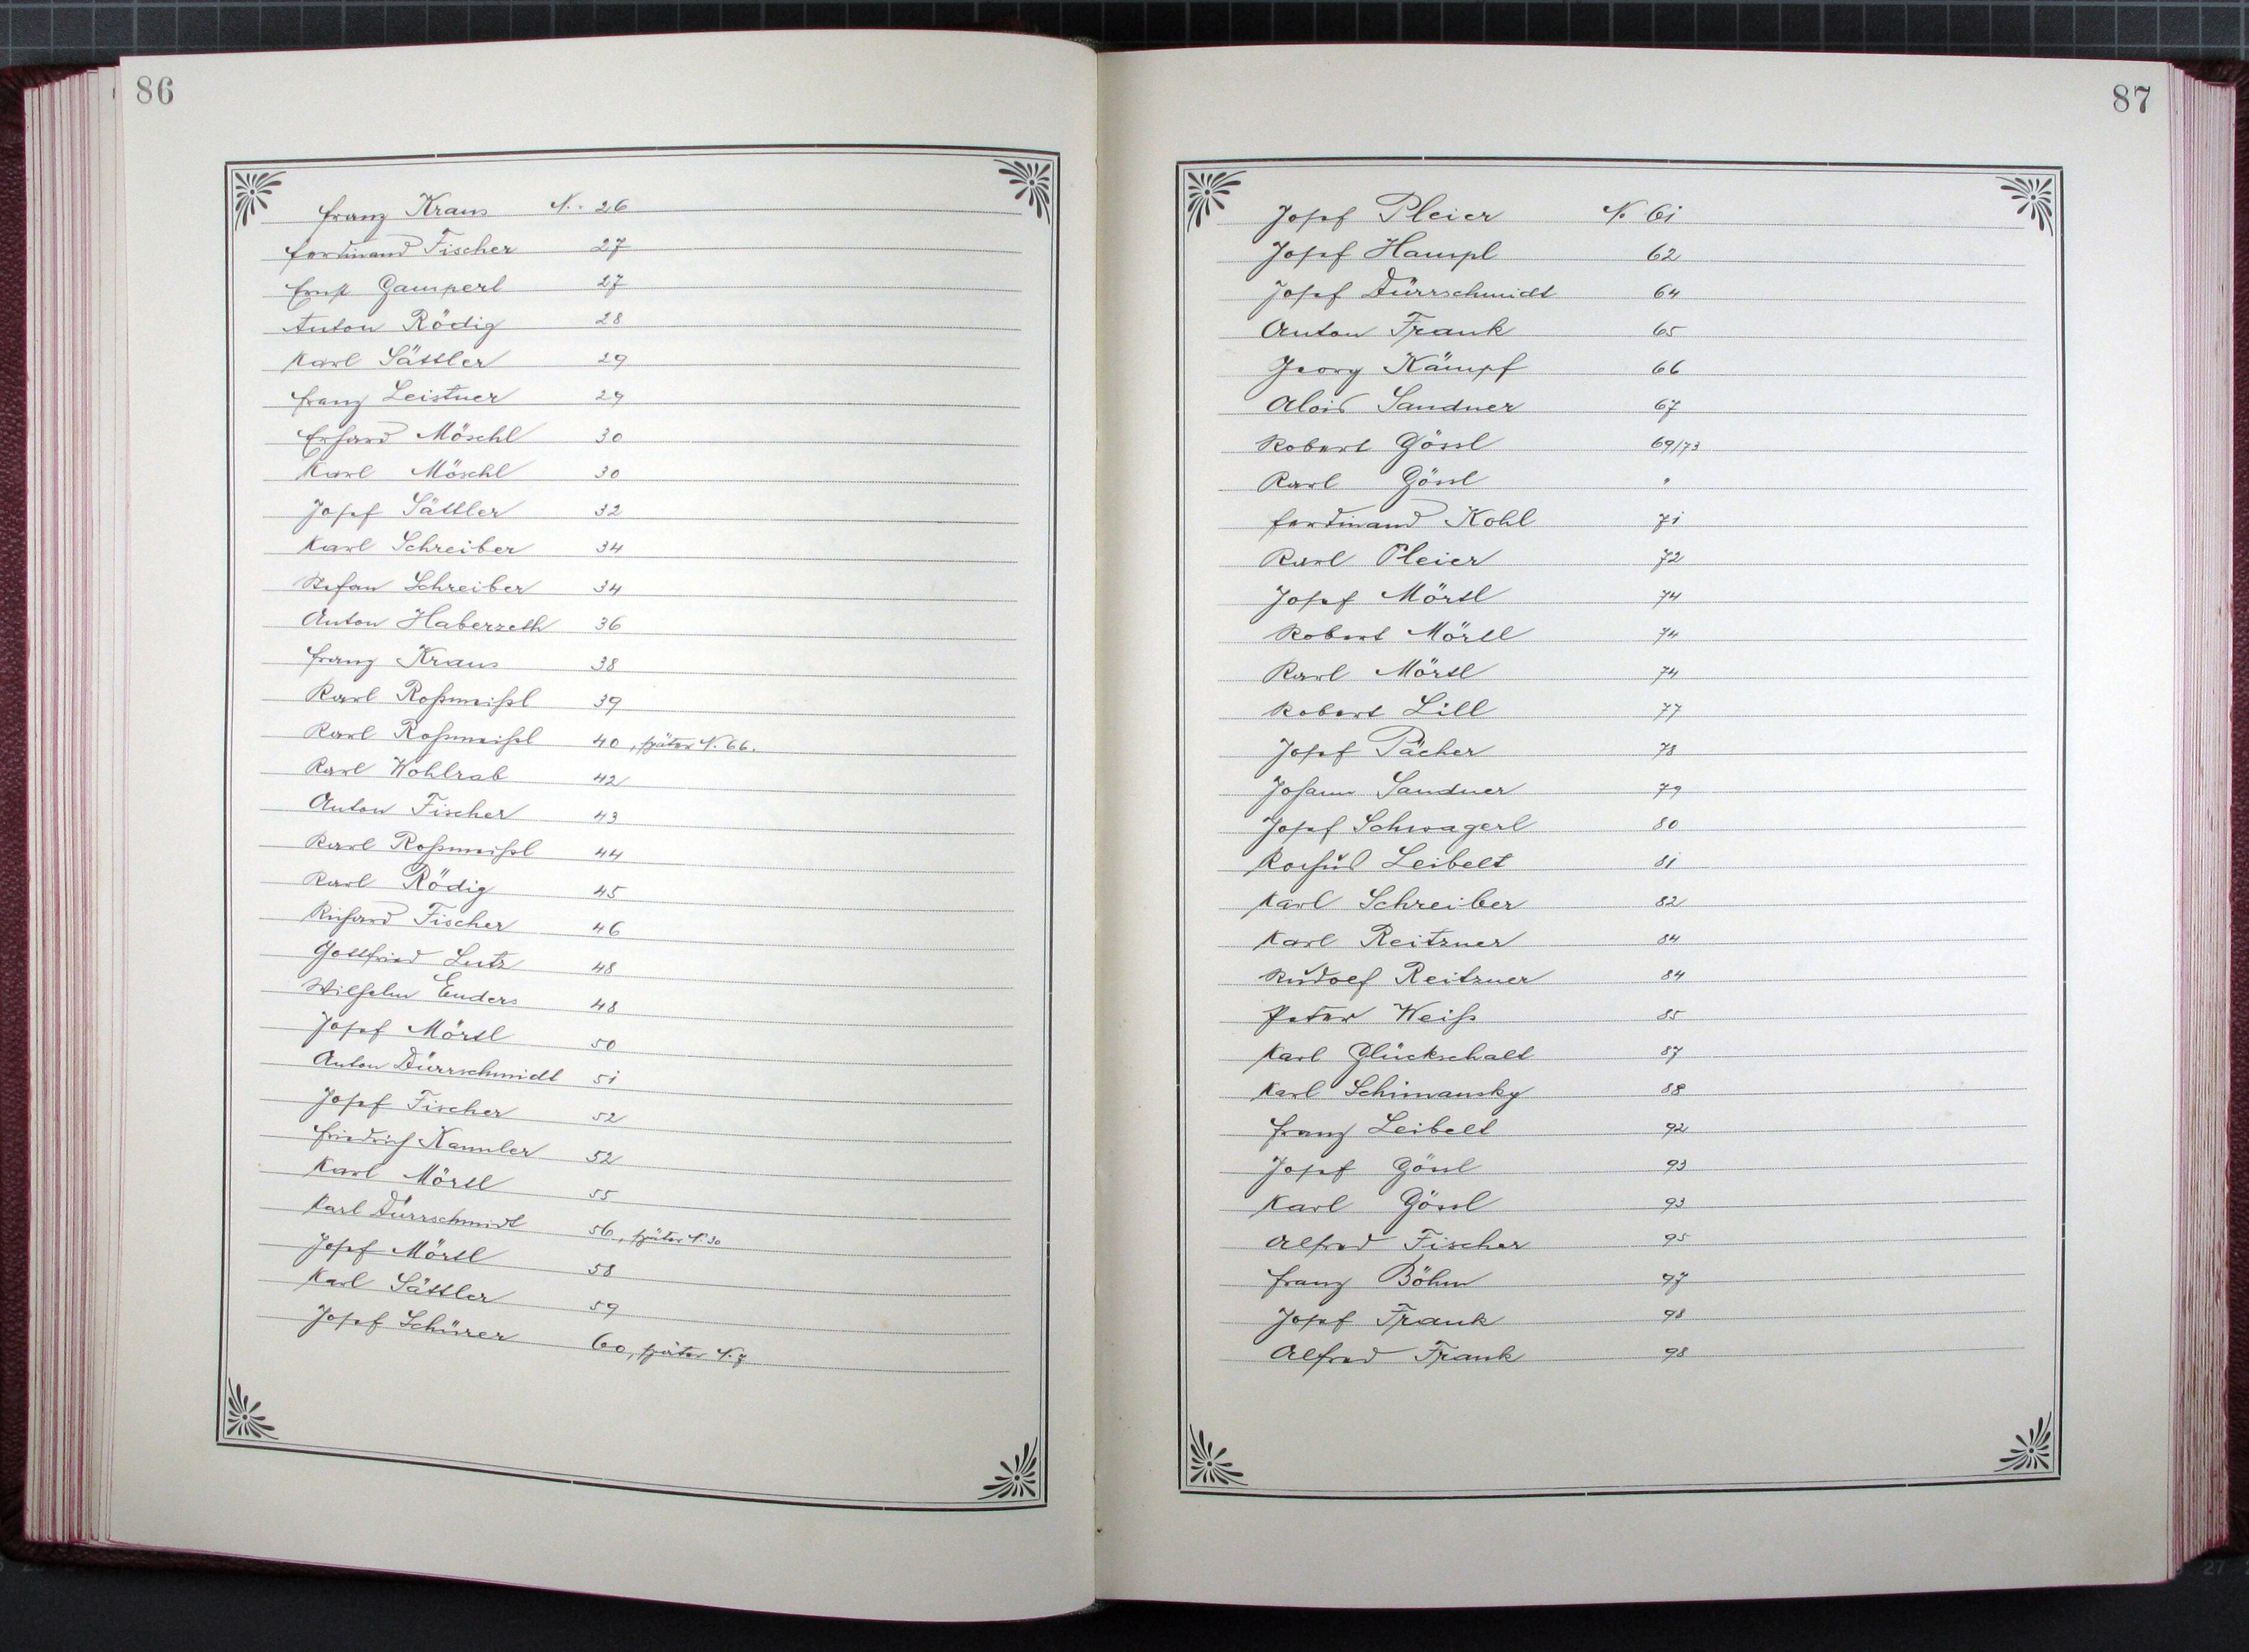 86
Franz Kraus N. 26
Ferdinand Fischer 27
Ernst Gamperl 27
Anton Rödig 28
Karl Sättler 29
Franz Leistner 29
Erhard Möschl 30
Karl Möschl 30
Josef Sättler 32
Karl Schreiber 34
Stefan Schreiber 34
Anton Haberzeth 36
Franz Kraus 38
Karl Roßmeißl 39
Karl Roßmeißl 40, später N. 66.
Karl Wohlrab 42
Anton Fischer 43
Karl Roßmeißl 44
Karl Rödig 45
Richard Fischer 46
Gottfried Lutz 48
Wilhelm Enders 48
Josef Mörtl 50
Anton Dürrschmidt 51
Josef Fischer 52
Friedrich Kannler 52
Karl Mörtl 55
Karl Dürrschmidt 56, später N. 30
Josef Mörtl 58
Karl Sättler 59
Josef Schürer 60, später N. 7
87
Josef Pleier N 61
Josef Hampl 62
Josef Dürrschmidt 64
Anton Frank 65
Georg Kämpf 66
Alois Sandner 67
Robert Gössl 69/73
Karl Gössl "
Ferdinand Kohl 71
Karl Pleier 72
Josef Mörtl 74
Robert Mörtl 74
Karl Mörtl 74
Robert Lill 77
Josef Pächer 78
Johann Sandner 79
Josef Schwagerl 80
Leibelt 81
Karl Schreiber 82
Karl Reitzner 84
Rudolf Reitzner 84
Peter Weiß 85
Karl Glückschalt 87
Karl Schimansky 88
Franz Leibelt 92
Josef Gössl 93
Karl Gössl 93
Alfred Fischer 95
Franz Böhm 97
Josef Frank 98
Alfred Frank 98